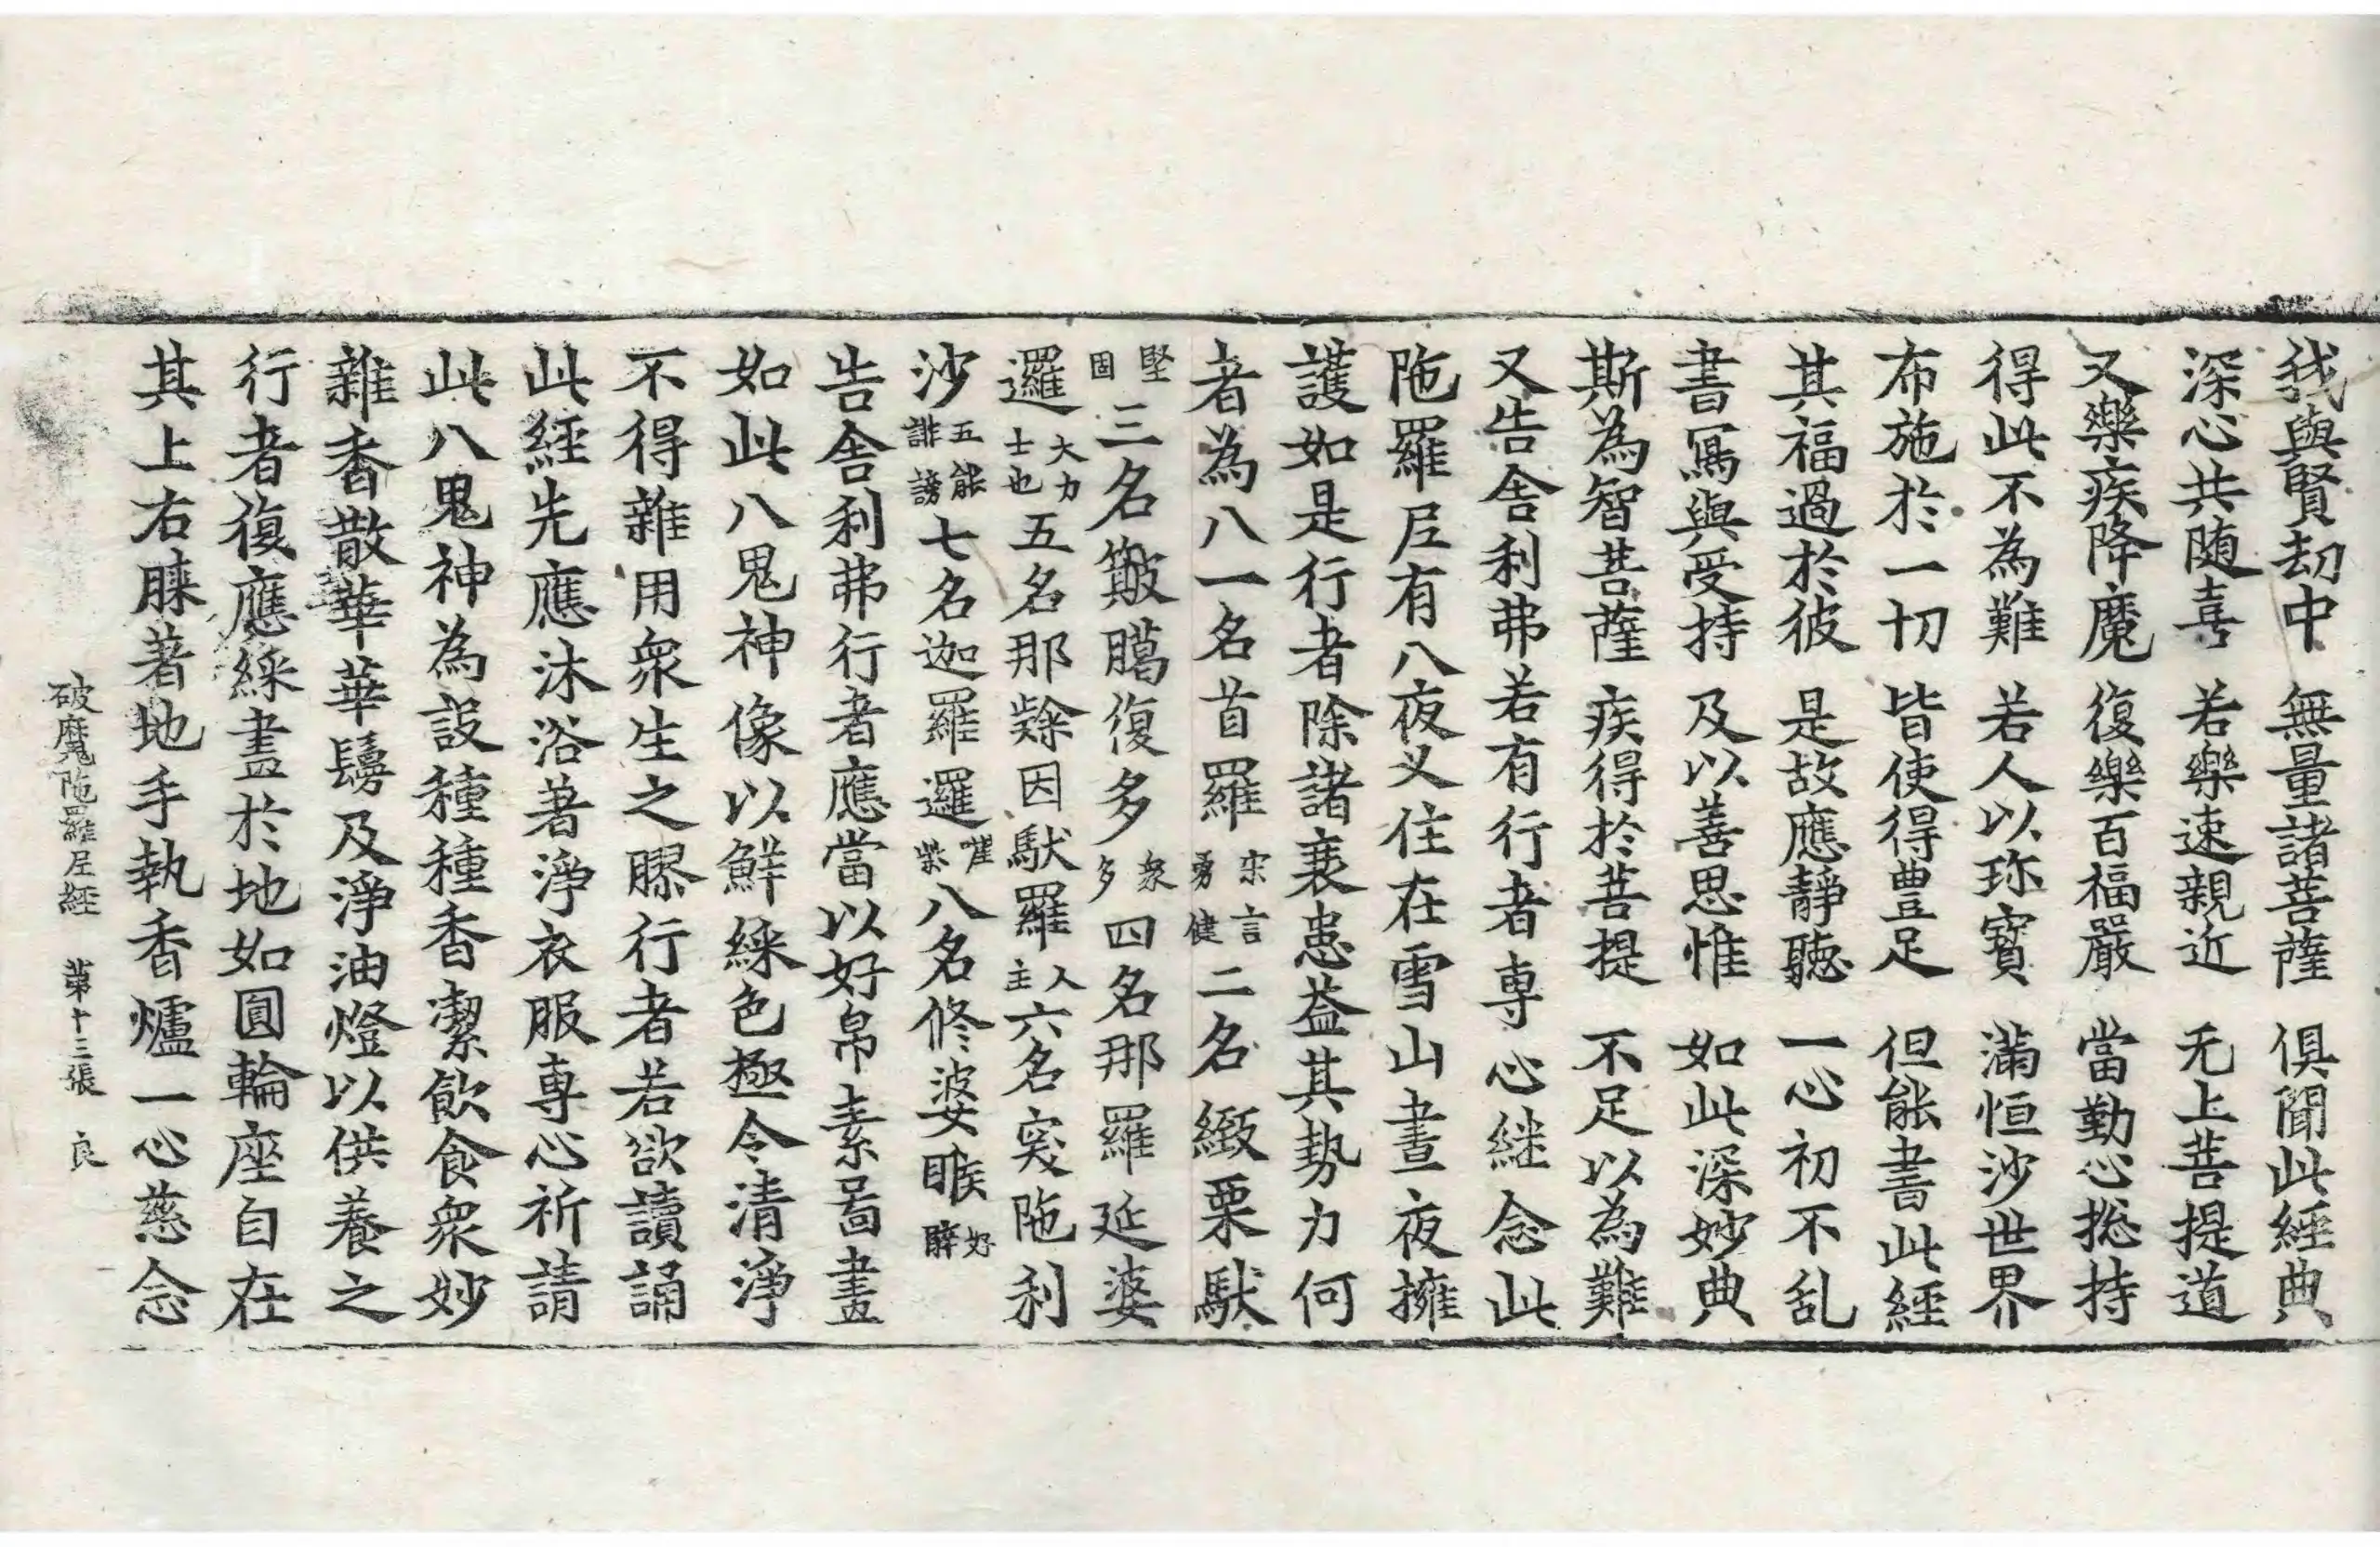 我與賢劫中　無量諸菩薩　俱聞此經典
深心共随喜　若樂速親近　无上菩提道
又樂疾降魔　復樂百福嚴　當勤心捴持
得此不為難　若人以珎寳　滿恒沙世界
布施於一切　皆使得豊足　但能書此經
其福過於彼　是故應靜聽　一心初不乱
書冩與受持　及以善思惟　如此深妙典
斯為智菩薩　疾得於菩提　不足以為難
又告舍利弗若有行者專心継念此
陁羅尼有八夜义住在雪山晝夜擁
護如是行者除諸衰患益其勢力何
者為八一名首羅宋言勇健二名緻栗馱
堅固三名簸𦡱復多衆多四名那羅延婆
邏大力士也五名那㱔因馱羅人主六名突陁利
沙五能誹謗七名迦羅邏嚾柴八名修婆睺好臂
告舍利弗行者應當以好帛素啚畫
如此八鬼神像以鮮綵色極令清淨
不得雜用衆生之膠行者若欲讀誦
此經先應沐浴著淨衣服專心祈請
此八鬼神為設種種香潔飲食衆妙
雜香散華華鬘及淨油燈以供養之
行者復應綵畫於地如圓輪座自在
其上右膝著地手執香爐一心慈念
破魔陁羅尼經　第十三張　良